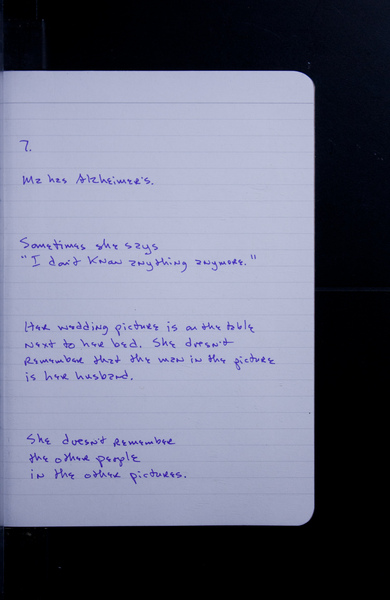 7.
Ma has Alzheimer's.
Sometimes she says
"I don't know anything anymore."
Her wedding picture is on the table
next to her bed. She doesn't
remember that the man in the picture
is her husband.
She doesn't remember
the other people
in the other pictures.